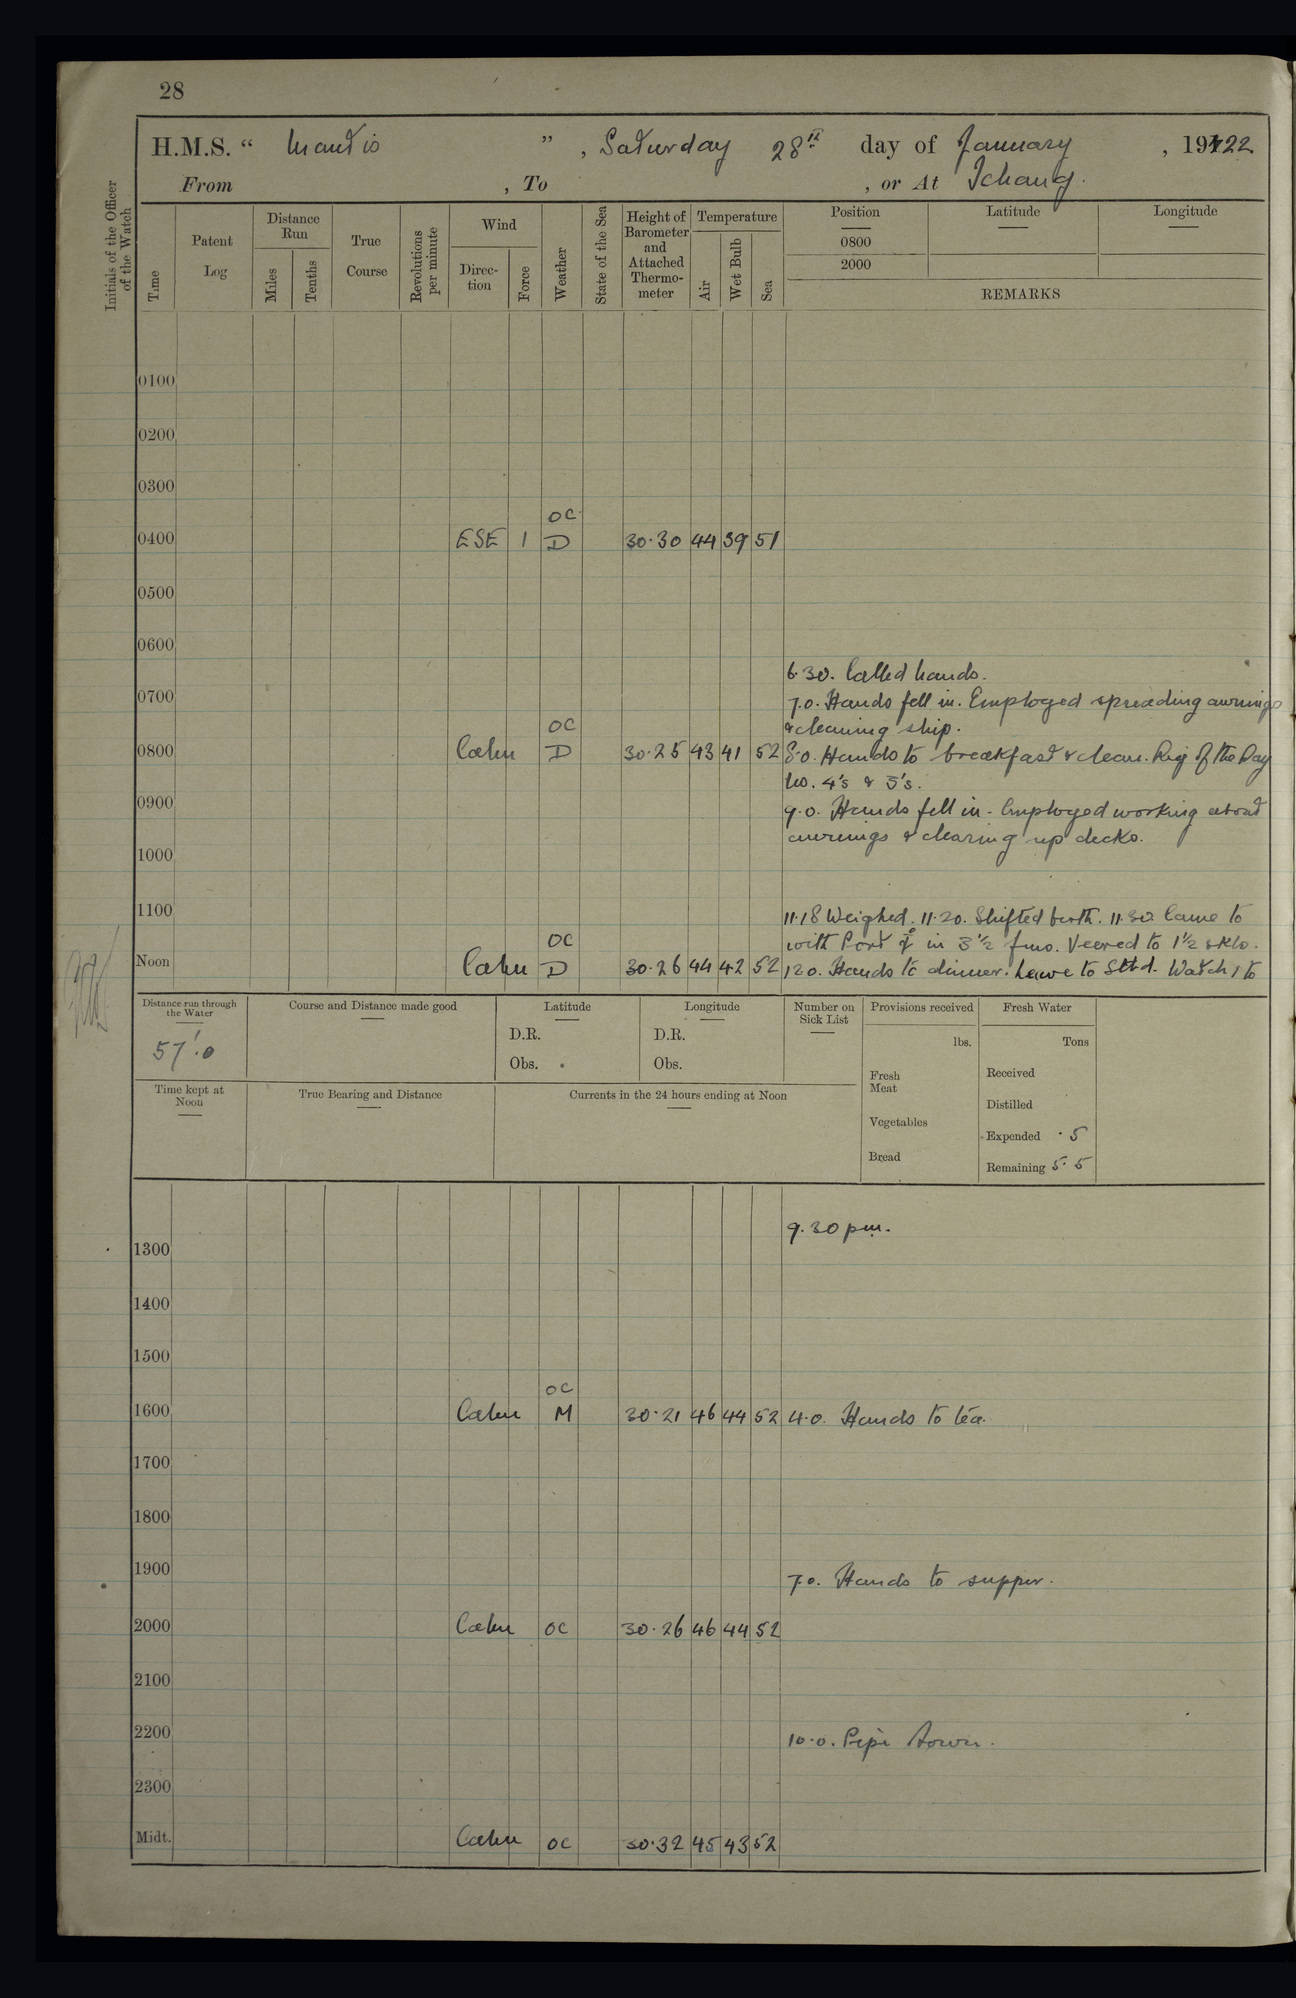 28
H.M.S. “ Mantis ” , Saturday 28th day of January , 1922
From , To , or At Ichang.
Initials of the Officer of the Watch
Time
Patent Log
Distance Run
Miles
Tenths
True Course
Revolutions per minute
Wind
Direc- tion
Force
Weather
State of the Sea
Height of Barometer and Attached Thermo- meter
Temperature
Air
Wet Bulb
Sea
Position Latitude Longitude
0800
2000
REMARKS
0100
0200
0300
OC
0400 ESE 1 D 30.30 44 39 51
0500
0600
6.30. Called hands.
0700 7.0. Hands fell in. Employed spreading awnings
OC & cleaning ship.
0800 Calm D 30.25 43 41 52 8.0. Hands to breakfast & clean. Rig of the Day
No. 4's & 5's.
0900 9.0. Hands fell in. Employed working about
awnings & clearing up decks.
1000
1100 11.18 Weighed. 11.20. Shifted berth. 11.30 Came to
OC with Port in 3½ fms. Veered to 1½ skls.
Noon Calm D 30.26 44 42 52 12.0. Hands to dinner. Leave to Stbd. Watch 1 to
Distance run through the Water
57'.0
Course and Distance made good
Latitude
D.R.
Obs.
Longitude
D.R.
Obs.
Number on Sick List
Provisions received
lbs.
Fresh Meat
Vegetables
Bread
Fresh Water
Tons
Received
Distilled
Expended .5
Remaining 5.5
Time kept at Noon
True Bearing and Distance
Currents in the 24 hours ending at Noon
9.30 pm.
1300
1400
1500
OC
1600 Calm M 30.21 46 44 52 4.0. Hands to tea.
1700
1800
1900 7.0. Hands to supper.
2000 Calm OC 30.26 46 44 52
2100
2200 10.0. Pipe down.
2300
Midt. Calm OC 30.32 45 43 52